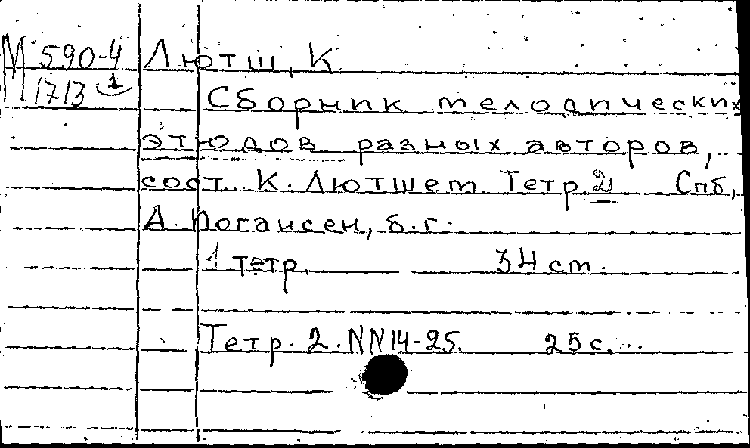 М 590-4 Лютш, К.
1713 1
Сборник мелодических
этюдов разных авторов,
сост. К. Лютшем. Тетр. 2 Спб,
А. Иогансен, б.г.
1 тетр. 34 cm.
Тетр. 2. NN14-25. 25 с.